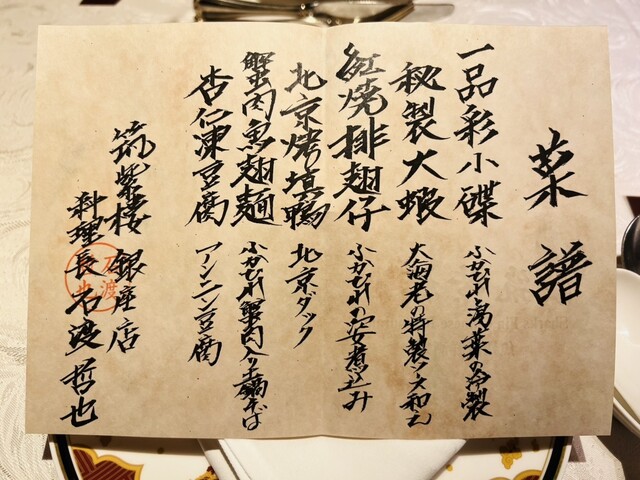 菜譜
一品彩小碟 ふかひれ前菜の冷製
秘製大蝦 大海老の特製ソース和え
紅燒排翅仔 ふかひれの姿煮込み
北京烤填鴨 北京ダック
蟹肉魚翅麺 ふかひれ蟹肉入り土鍋そば
杏仁凍豆腐 アンニン豆腐
筑紫樓 銀座店
料理長 石渡哲也